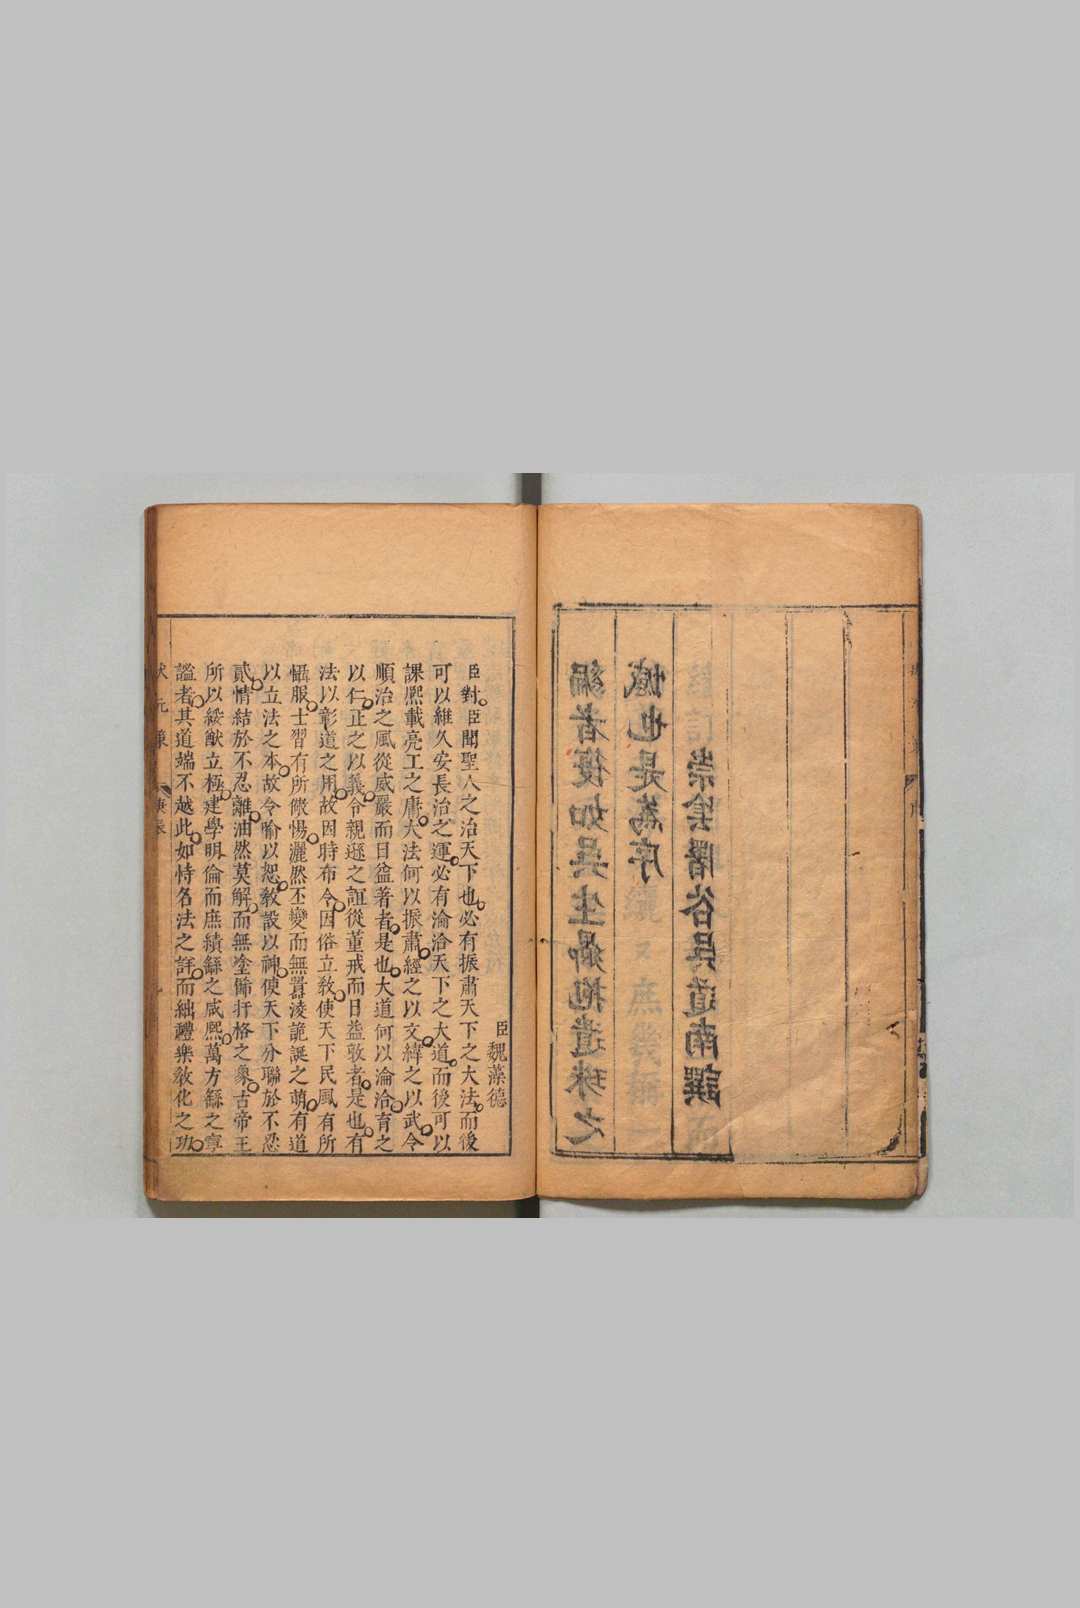 編者復如吳生鼎抱遺珠之
憾也是爲序
崇陰曙谷吳道南譔
臣魏藻德
臣對臣聞聖人之治天下也必有振肅天下之大法而後
可以維久安長治之運必有淪洽天下之大道而後可以
課熙載亮工之庸大法何以振肅經之以文緯之以武令
順治之風從威嚴而日益著者是也大道何以淪洽育之
以仁正之以義令親遜之誼從董戒而日益敦者是也有
法以彰道之用故因時布令因俗立教使天下民風有所
懾服士習有所儆惕灑然丕變而無囂淩詭誕之萌有道
以立法之本故令喻以恕教設以神使天下分聯於不忍
貳情結於不忍離油然莫解而無塗飾扞格之象古帝王
所以綏猷立極建學明倫而庶績繇之咸熙萬方繇之寧
謐者其道端不越此如恃名法之詳而絀禮樂教化之功
狀元策 庚辰